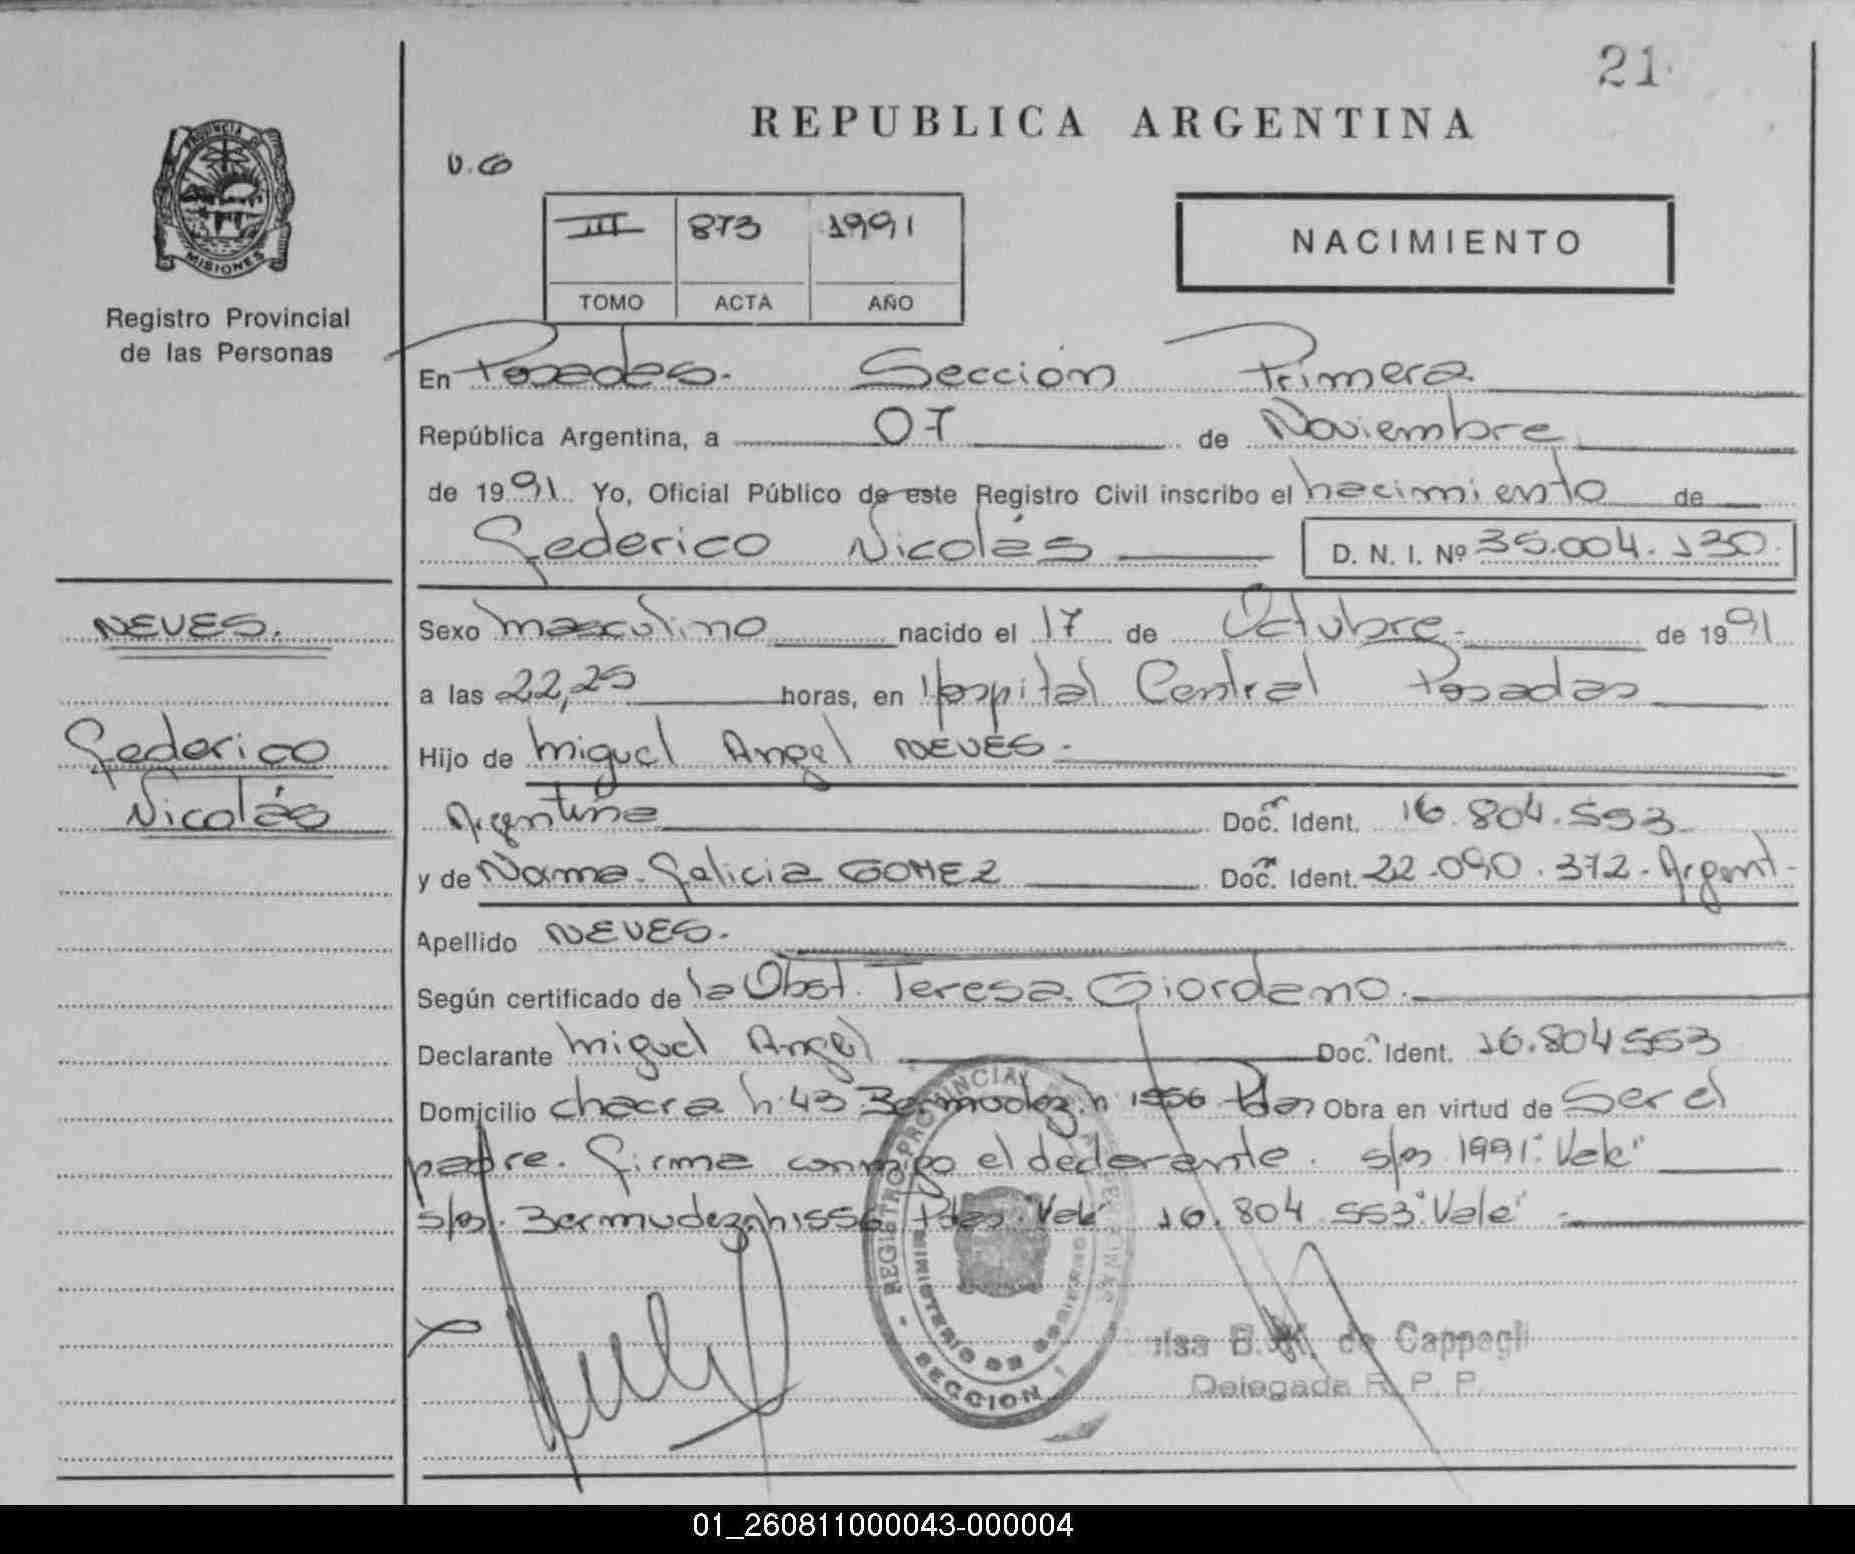 21
REPUBLICA ARGENTINA
PROVINCIA DE
MISIONES
Registro Provincial
de las Personas
III 873 1991
TOMO ACTA AÑO
NACIMIENTO
En Posadas. Sección Primera
República Argentina, a 07 de Noviembre
de 1991 Yo, Oficial Público de este Registro Civil inscribo el nacimiento de
Federico Nicolás D. N. I. Nº 35.004.130.
NEVES.
Federico
Nicolás
Sexo masculino nacido el 17 de Octubre. de 1991
a las 22,25 horas, en Hospital Central Posadas
Hijo de Miguel Angel NEVES.
Argentina Doc. Ident. 16.804.553
y de Norma Felicia GOMEZ Doc. Ident. 22.090.372. Argent.
Apellido NEVES.
Según certificado de la Obst. Teresa Giordano.
Declarante Miguel Angel Doc. Ident. 16.804553
Domicilio chacra n 43 Bermudez n 1556 Pdas Obra en virtud de Ser el
padre. Firma conmigo el declarante. s/r 1991 "Vale"
s/r. Bermudez n 1556 Pdas "Vale" 16.804.553 "Vale"
REGISTRO PROVINCIAL DE LAS PERSONAS
MINISTERIO DE GOBIERNO
SECCION 1
B. M. de Cappagli
Delegada R. P. P.
01_260811000043-000004